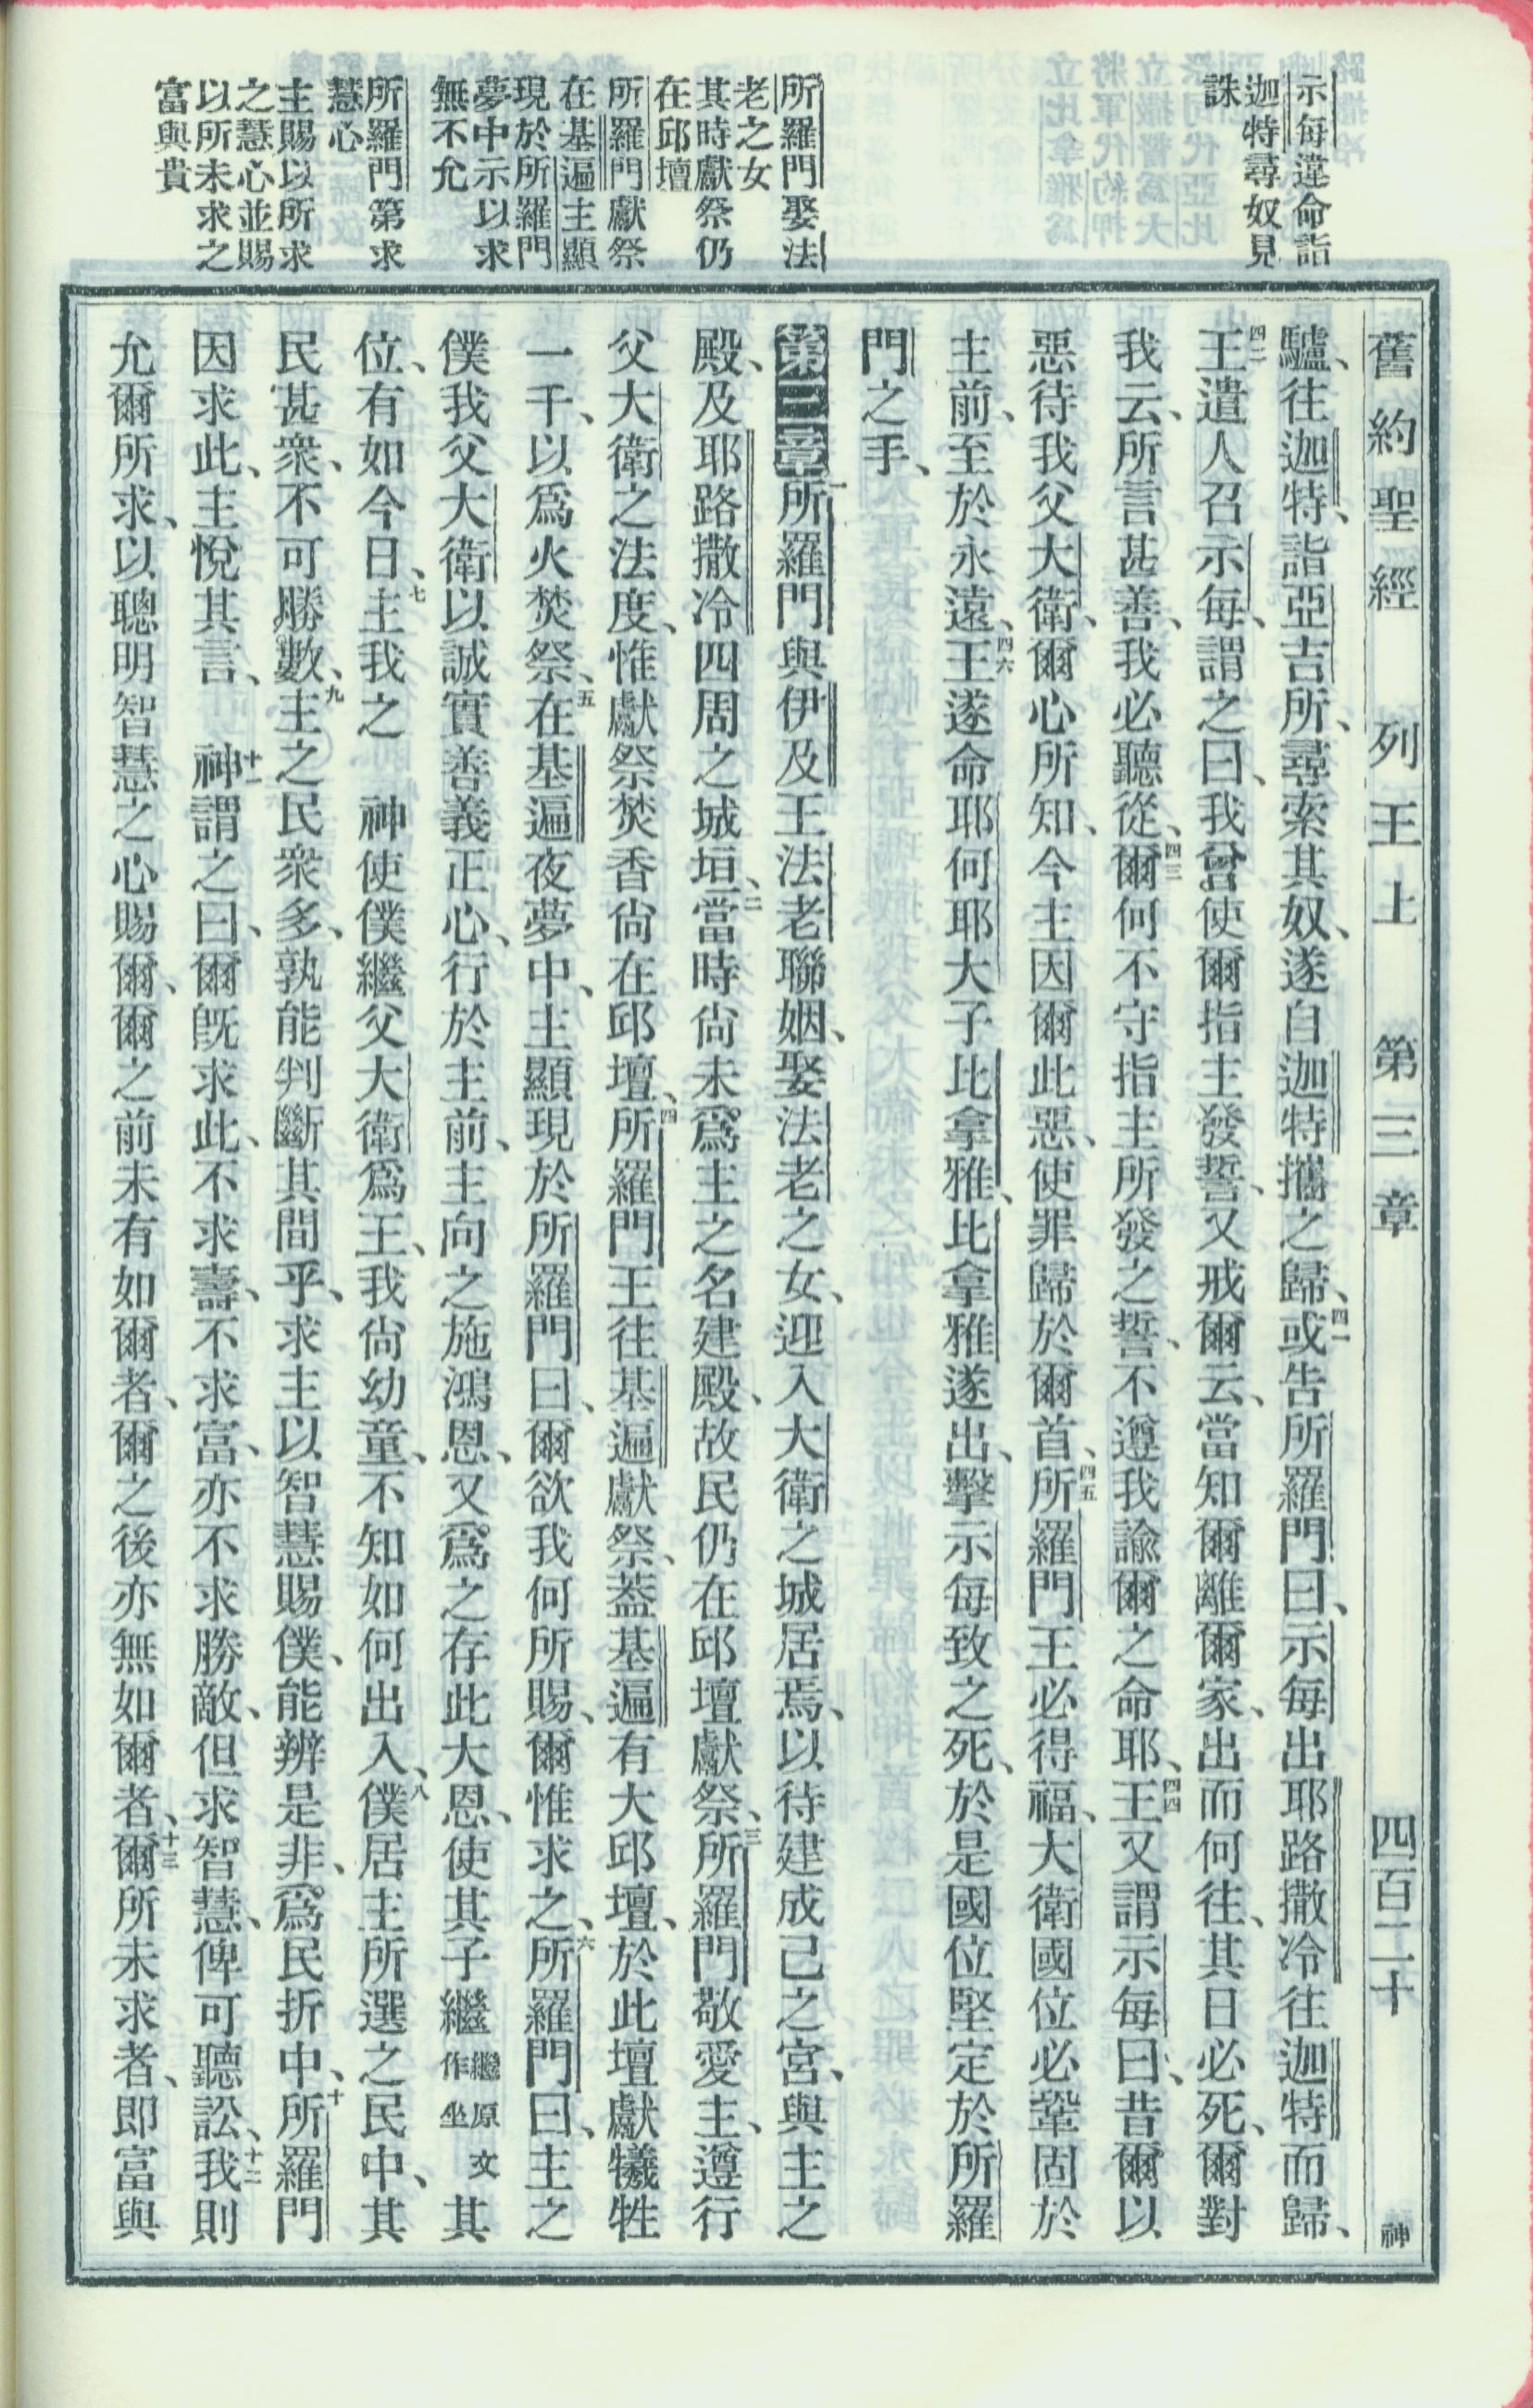 舊約聖經 列王上 第三章 四百二十 神
示每違命詣
迦特尋奴見
誅
所羅門娶法
老之女
其時獻祭仍
在邱壇
所羅門獻祭
在基遍主顯
現於所羅門
夢中示以求
無不允
所羅門第求
慧心
主賜以所求
之慧心並賜
以所未求之
富與貴
驢、往迦特、詣亞吉所、尋索其奴、遂自迦特攜之歸、四一或告所羅門曰、示每出耶路撒冷往迦特而歸、
四二王遣人召示每、謂之曰、我曾使爾指主發誓、又戒爾云、當知爾離爾家、出而何往、其日必死、爾對
我云、所言甚善、我必聽從、四三爾何不守指主所發之誓、不遵我諭爾之命耶、四四王又謂示每曰、昔爾以
惡待我父大衛、爾心所知、今主因爾此惡、使罪歸於爾首、四五所羅門王必得福、大衛國位必鞏固於
主前、至於永遠、四六王遂命耶何耶大子比拿雅、比拿雅遂出、擊示每致之死、於是國位堅定於所羅
門之手、
第三章一所羅門與伊及王法老聯姻、娶法老之女、迎入大衛之城居焉、以待建成己之宮、與主之
殿、及耶路撒冷四周之城垣、二當時尙未爲主之名建殿、故民仍在邱壇獻祭、三所羅門敬愛主、遵行
父大衛之法度、惟獻祭焚香尙在邱壇、四所羅門王往基遍獻祭、葢基遍有大邱壇、於此壇獻犧牲
一千、以爲火焚祭、五在基遍夜夢中、主顯現於所羅門曰、爾欲我何所賜、爾惟求之、六所羅門曰、主之
僕我父大衛以誠實善義正心、行於主前、主向之施鴻恩、又爲之存此大恩、使其子繼繼原文作坐其
位、有如今日、七主我之 神使僕繼父大衛爲王、我尙幼童、不知如何出入、八僕居主所選之民中、其
民甚衆、不可勝數、九主之民衆多、孰能判斷其間乎、求主以智慧賜僕、能辨是非、爲民折中、十所羅門
因求此、主悅其言、 十一神謂之曰、爾旣求此、不求壽、不求富、亦不求勝敵、但求智慧、俾可聽訟、十二我則
允爾所求、以聰明智慧之心賜爾、爾之前未有如爾者、爾之後亦無如爾者、十三爾所未求者、即富與